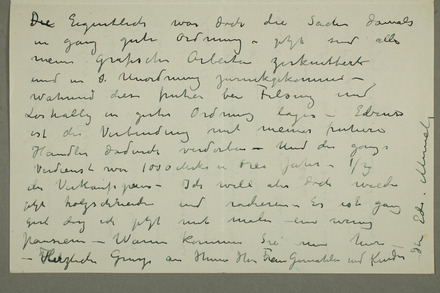 Eigentlich war doch die Sachen damals
in ganz guter Ordnung – jetzt sind alle
meine grafischen Arbeiten zerknittert
und in Unordnung zurückgekommen –
während dies früher bei und
in guter Ordnung lagen –
ist die Verbindung mit meinem früheren
Händler dadurch verdorben – Und der ganze
Verdienst war 1000 Mark in drei Jahren – 1/3
des Verkaufspreis – Ich will aber doch wieder
jetzt holzschneiden und radieren – Es ist ganz
gut daß ich jetzt mit malen ein wenig
pausiere – Wann kommen Sie nun hier –
– Herzliche Grüsse an Ihnen Ihre Frau Gemahlin und Kinder
Ihr Edv. Munch